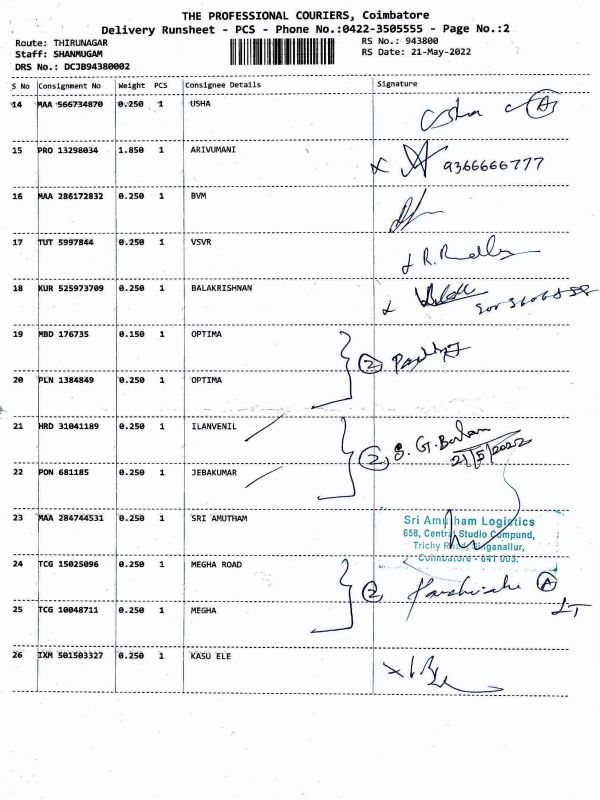 THE PROFESSIONAL COURIERS, Coimbatore
Delivery Runsheet - PCS - Phone No.:0422-3505555 - Page No.:2
Route: THIRUNAGAR
Staff: SHANMUGAM
DRS No.: DCJB94380002
RS No.: 943800
RS Date: 21-May-2022
S No Consignment No Weight PCS Consignee Details Signature
14 MAA 566734870 0.250 1 USHA Usha A
15 PRO 13298034 1.850 1 ARIVUMANI 9366666777
16 MAA 286172832 0.250 1 BVM
17 TUT 5997844 0.250 1 VSVR
18 KUR 525973709 0.250 1 BALAKRISHNAN
19 MBD 176735 0.150 1 OPTIMA 2
20 PLN 1384849 0.250 1 OPTIMA
21 HRD 31041189 0.250 1 ILANVENIL 2
21/5/2022
22 PON 681185 0.250 1 JEBAKUMAR
23 MAA 284744531 0.250 1 SRI AMUTHAM Sri Amutham Logistics
658, Central Studio Compund,
Trichy Road, Singanallur,
Coimbatore - 641 005.
24 TCG 15025096 0.250 1 MEGHA ROAD 2 A
25 TCG 10048711 0.250 1 MEGHA
26 IXM 501503327 0.250 1 KASU ELE